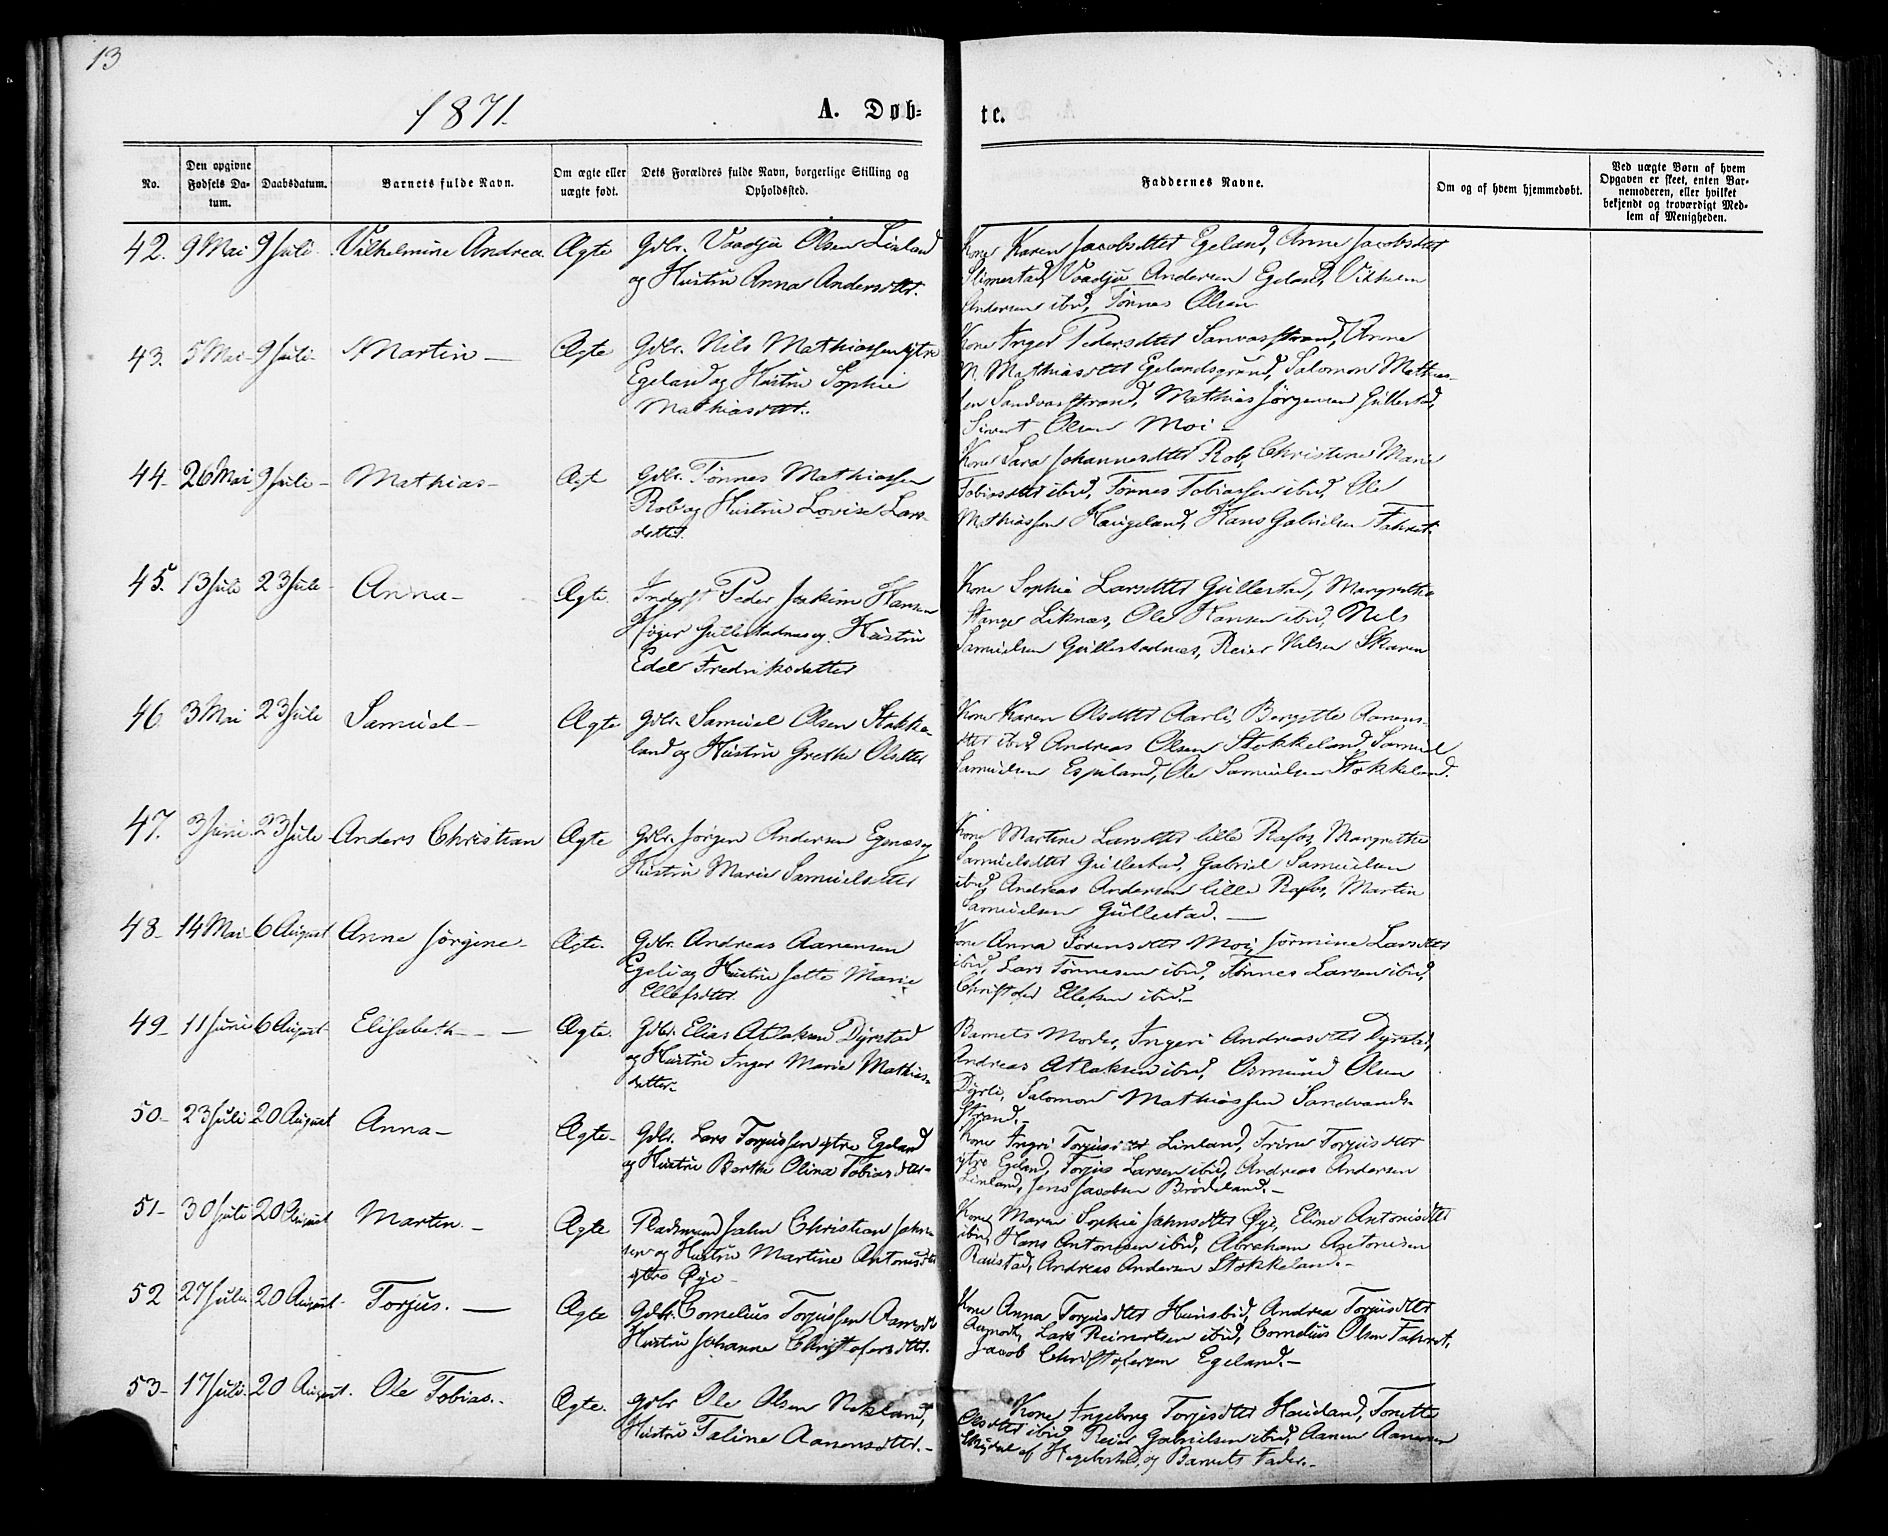 13
1871.
A. Døb-
te.
No.
Den opgivne Fødsels Da-tum.
Daabsdatum.
Barnets fulde Navn.
Om ægte eller uægte født.
Dets Forældres fulde Navn, borgerlige Stilling og Opholdssted.
Faddernes Navne.
Om og af hvem hjemmedøbt.
Ved uægte Børn af hvem Opgaven er skeet, enten Bar-nemoderen, eller hvilket bekjendt og troværdigt Med-lem af Menigheden.
42. 9 Mai 9 Juli Vilhelmine Andrea. Ægte
Gdbr. Vaadju Olsen Linland
og Hustru Anna Andersdtr.
Kone Karen Jacobsdtter Egeland, Anne Jacobsdtr
Slimestad, Vaadju Andersen Egeland, Vilhelm
Andersen ibid, Tønnes Olsen
43. 5 Mai 9 Juli Martin Ægte
Gdbr. Nils Mathiassen ytre
Egeland og Hustru Sophie
Mathiasdtr.
Kone Inger Pedersdtter Sanvasstrand, Anne
M. Mathiasdtter Egelandsgrund, Salomon Mathias-
sen Sandvasstrand, Mathias Jørgensen Gullestad,
Sivert Olsen Moi
44 26 Mai 9 Juli Mathias Ægt
Gdbr. Tønnes Mathiassen
Rob og Hustru Lovise Lars-
datter
Kone Sara Johannesdtter Rob, Christine Marie
Tobiasdtter ibid, Tønnes Tobiassen ibid, Ole
Mathiassen Haugeland, Hans Gabrielsen Fahret
45. 13 Juli 23 Juli Anna Ægte.
Inderst Peder Joakim Hansen
Høyer Gullestadnes og Hustru
Edel Fredriksdatter
Kone Sophie Larsdtter Gullestad, Margrethe
Stanger Liknæs, Ole Hansen ibid, Nels
Samuelsen Gullestadnæs, Reier Nilsen Skaren
46 3 Mai 23 Juli Samuel Ægte
Gdbr. Samuel Olsen Stokke-
land og Hustru Grethe Olsdtter
Kone Karen Olsdtter Aarli, Bergette Aanens-
dtter ibid, Andreas Olsen Stokkeland, Samuel
Samuelsen Espeland, Ole Samuelsen Stokkeland.
47. 3 Juni 23 Juli Anders Christian Ægte
Gdbr. Jørgen Andersen Egenes og
Hustru Marie Samuelsdtter
Kone Martine Larsdtter lille Rafos, Margrethe
Samuelsdtter Gullestad, Gabriel Samuelsen
ibid, Andreas Andersen lille Rafos, Martin
Samuelsen Gullestad.
48 14 Mai 6 August Anne Jørgine Ægte.
Gdbr. Andreas Aanensen
Egeli og Hustru Jette Marie
Ellefsdtter
Kone Anna Sørensdtter Moi, Jørmine Larsdtter
ibid, Lars Tønnesen ibid, Tønnes Larsen ibid,
Christofer Ellefsen ibid.
49 11 Juni 6 August Elisabeth Ægte.
Gdbr. Elias Atlaksen Dyrstad
og Hustru Inger Marie Mathias-
datter
Barnets Moder, Ingeri Andreasdtter Dyrstad,
Andreas Atlaksen ibid, Osmund Olsen
Dyrli, Salomon Mathiassen Sandvands-
strand.
50 23 Juli 20 August Anna Ægte
Gdbr. Lars Torjussen ytre Egeland
og Hustru Berthe Olina Tobiasdtter
Kone Ingri Torjusdtter Linland, Trine Torjusdtter
ytre Egeland, Torjus Larsen ibid, Andreas Andersen
Linland, Jens Jacobsen Brødeland.
51 30 Juli 20 August Martin. Ægte
Pladsmand John Christian John-
sen og Hustru Martine Antonisdtr
ytre Øye
Kone Marie Sophie Johnsdtter Øye, Eline Antonisdtter
ibid, Hans Antonisen ibid, Abraham Antonisen
Raustad, Andreas Andersen Stokkeland.
52 27 Juli 20 August Torjus. Ægte
Gdbr. Cornelius Torjussen Aamodt
Hustru Johanne Christofersdtter.
Kone Anna Torjusdtter Hunsbed, Andrea Torjusdtter
Aamodt, Lars Reinertsen ibid, Cornelius Olsen Fahret,
Jacob Christofersen Egeland.
53 17 Juli 20 August. Ole Tobias. Ægte.
Gdbr Ole Olsen Nekland,
Hustru Taline Aanensdtter.
Kone Ingeborg Torjusdtter Haueland, Tonette
Olsdtter ibid, Reier Gabrielsen ibid, Aanen Aanensen
af Hegebostad, og Barnets Fader.